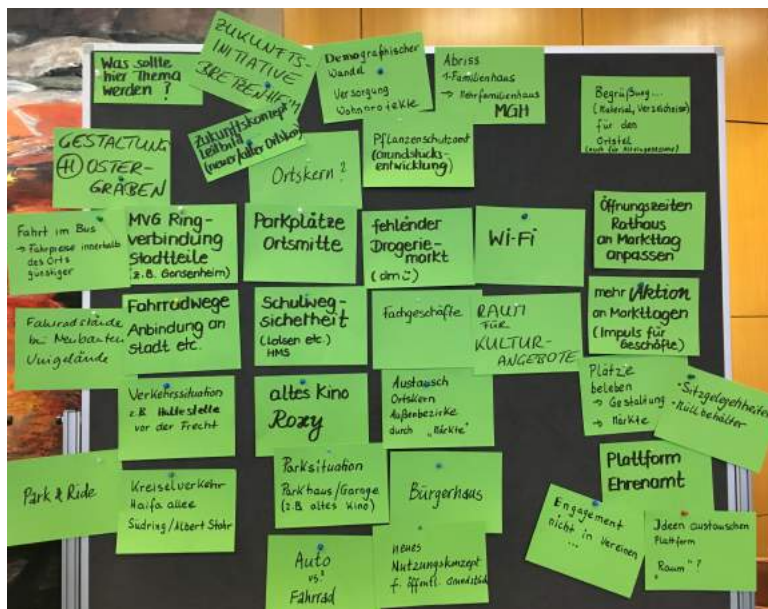 Was sollte
hier Thema
werden ?
ZUKUNFTS-
INITIATIVE
BRETZENHEIM
Demografischer
Wandel
Versorgung
Wohnprojekte
Abriss
1-Familienhaus
→ Mehrfamilienhaus
MGH
Begrüßung...
(Material, Verzeichnisse)
für den
Ortsteil
(auch für Alteingesessene)
GESTALTUNG
OSTER-
GRABEN
Zukunftskonzept
Leitbild
(neuer/alter Ortskern)
Ortskern?
Pflanzenschutzamt
(Grundstücks-
entwicklung)
Fahrt im Bus
→ Fahrpreise innerhalb
des Orts
günstiger
MVG Ring-
verbindung
Stadtteile
(z.B. Gonsenheim)
Parkplätze
Ortsmitte
fehlender
Drogerie-
markt
(dm
Wi-Fi
Öffnungszeiten
Rathaus
an Markttag
anpassen
Fahrradstände
bei Neubauten
Unigelände
Fahrradwege
Anbindung an
Stadt etc.
Schulweg-
sicherheit
(Lotsen etc.)
HMS
Fachgeschäfte
RAUM
FÜR
KULTUR-
ANGEBOTE
mehr Aktion
an Markttagen
(Impuls für
Geschäfte)
Verkehrssituation
z.B. Haltestelle
vor der Frecht
altes Kino
Roxy
Austausch
Ortskern
Außenbezirke
durch „Märkte"
Plätze
beleben
→ Gestaltung
→ Märkte
• Sitzgelegenheiten
• Müllbehälter
Park & Ride
Kreiselverkehr
Haifa allee
Südring/Albert Stohr
Parksituation
Parkhaus/Garage
(z.B altes Kino)
Bürgerhaus
Plattform
Ehrenamt
Engagement
nicht in Vereinen
...
Ideen austauschen
Plattform
„Raum"?
Auto
vs.
Fahrrad
neues
Nutzungskonzept
f. öffentl. Grundstück